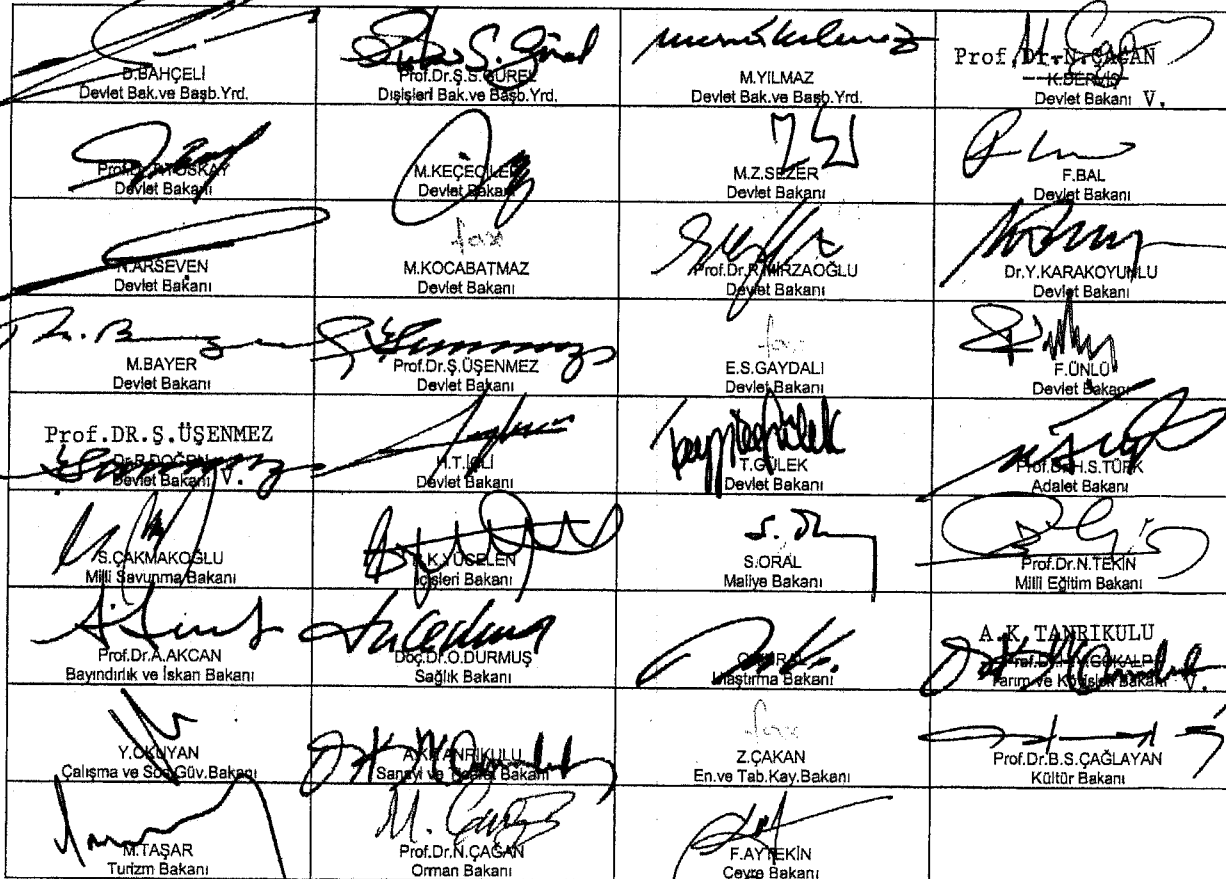 D.BAHÇELİ
Devlet Bak.ve Başb.Yrd.
Prof.Dr.Ş.S.GÜREL
Dışişleri Bak.ve Başb.Yrd.
M.YILMAZ
Devlet Bak.ve Başb.Yrd.
Prof.Dr.N.ÇAĞAN
K.DERVİŞ
Devlet Bakanı V.
TOSKAY
Devlet Bakanı
M.KEÇECİLER
Devlet Bakanı
M.Z.SEZER
Devlet Bakanı
F.BAL
Devlet Bakanı
N.ARSEVEN
Devlet Bakanı
fax
M.KOCABATMAZ
Devlet Bakanı
Prof.Dr.R.MİRZAOĞLU
Devlet Bakanı
Dr.Y.KARAKOYUNLU
Devlet Bakanı
M.BAYER
Devlet Bakanı
Prof.Dr.Ş.ÜŞENMEZ
Devlet Bakanı
fax
E.S.GAYDALI
Devlet Bakanı
F.ÜNLÜ
Devlet Bakanı
Prof.DR.Ş.ÜŞENMEZ
Devlet Bakanı V.
Devlet Bakanı
T.GÜLEK
Devlet Bakanı
Prof.Dr.H.S.TÜRK
Adalet Bakanı
S.ÇAKMAKOĞLU
Milli Savunma Bakanı
R.K.YÜCELEN
İçişleri Bakanı
S.ORAL
Maliye Bakanı
Prof.Dr.N.TEKİN
Milli Eğitim Bakanı
Prof.Dr.A.AKCAN
Bayındırlık ve İskan Bakanı
Doç.Dr.O.DURMUŞ
Sağlık Bakanı
Ulaştırma Bakanı
A.K.TANRIKULU
Tarım ve Köyişleri Bakanı V.
Y.OKUYAN
Çalışma ve Sos.Güv.Bakanı
A.K.TANRIKULU
Sanayi ve Ticaret Bakanı
fax
Z.ÇAKAN
En.ve Tab.Kay.Bakanı
Prof.Dr.B.S.ÇAĞLAYAN
Kültür Bakanı
M.TAŞAR
Turizm Bakanı
Prof.Dr.N.ÇAĞAN
Orman Bakanı
F.AYTEKİN
Çevre Bakanı